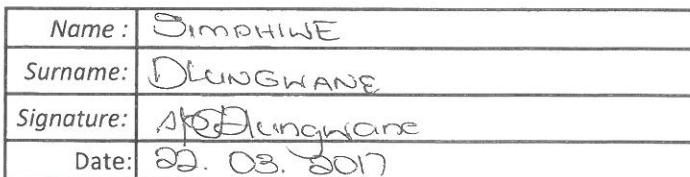 Name : SIMPHIWE
Surname: DLUNGWANE
Signature: Dlungwane
Date: 22. 03. 2017